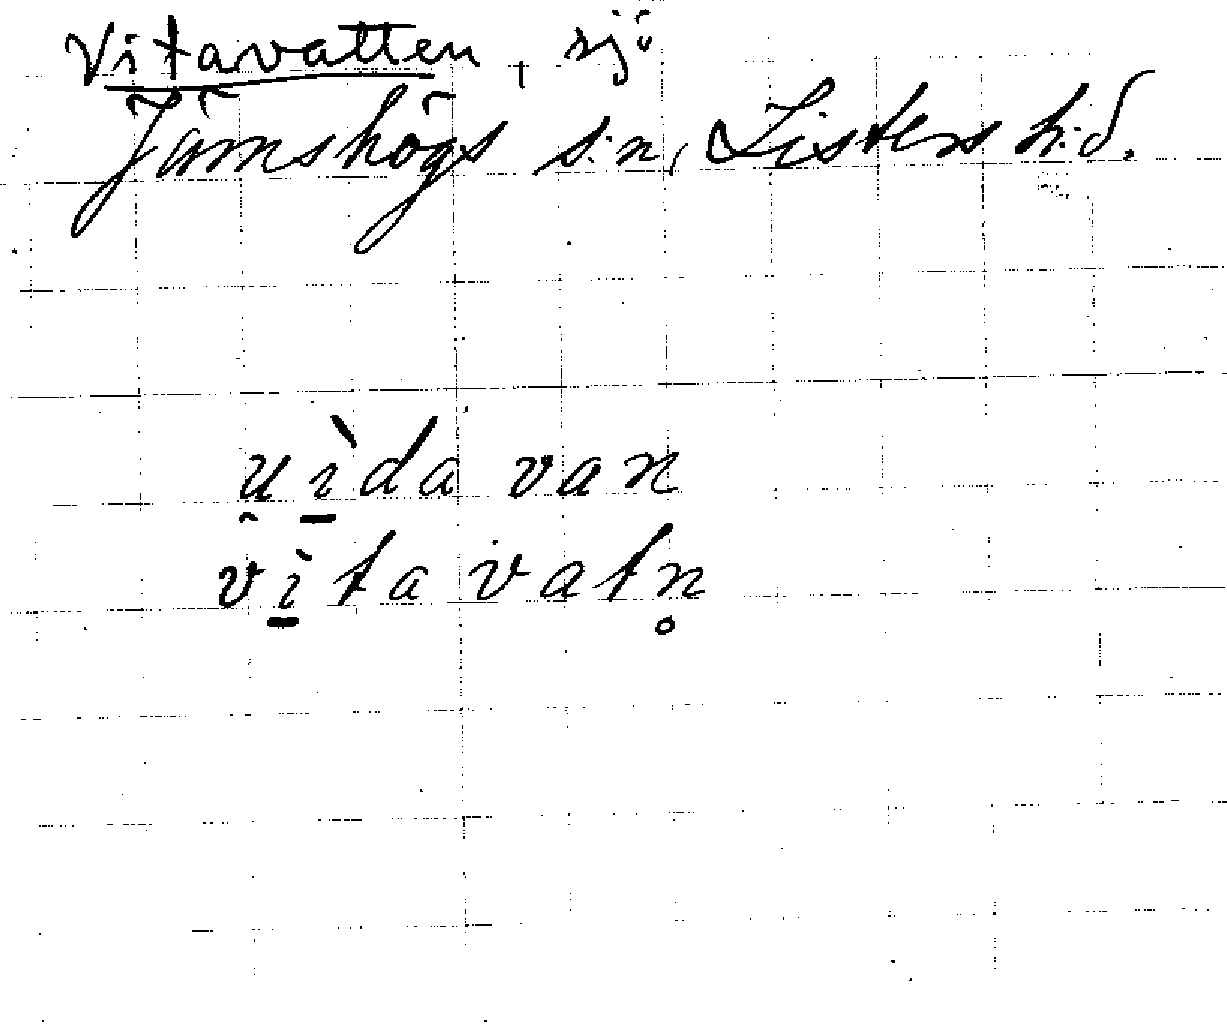 Vitavatten, sjö
Jämshögs s:n, Listers h:d.
u̯ì̱da van
vì̱ta vatn̥